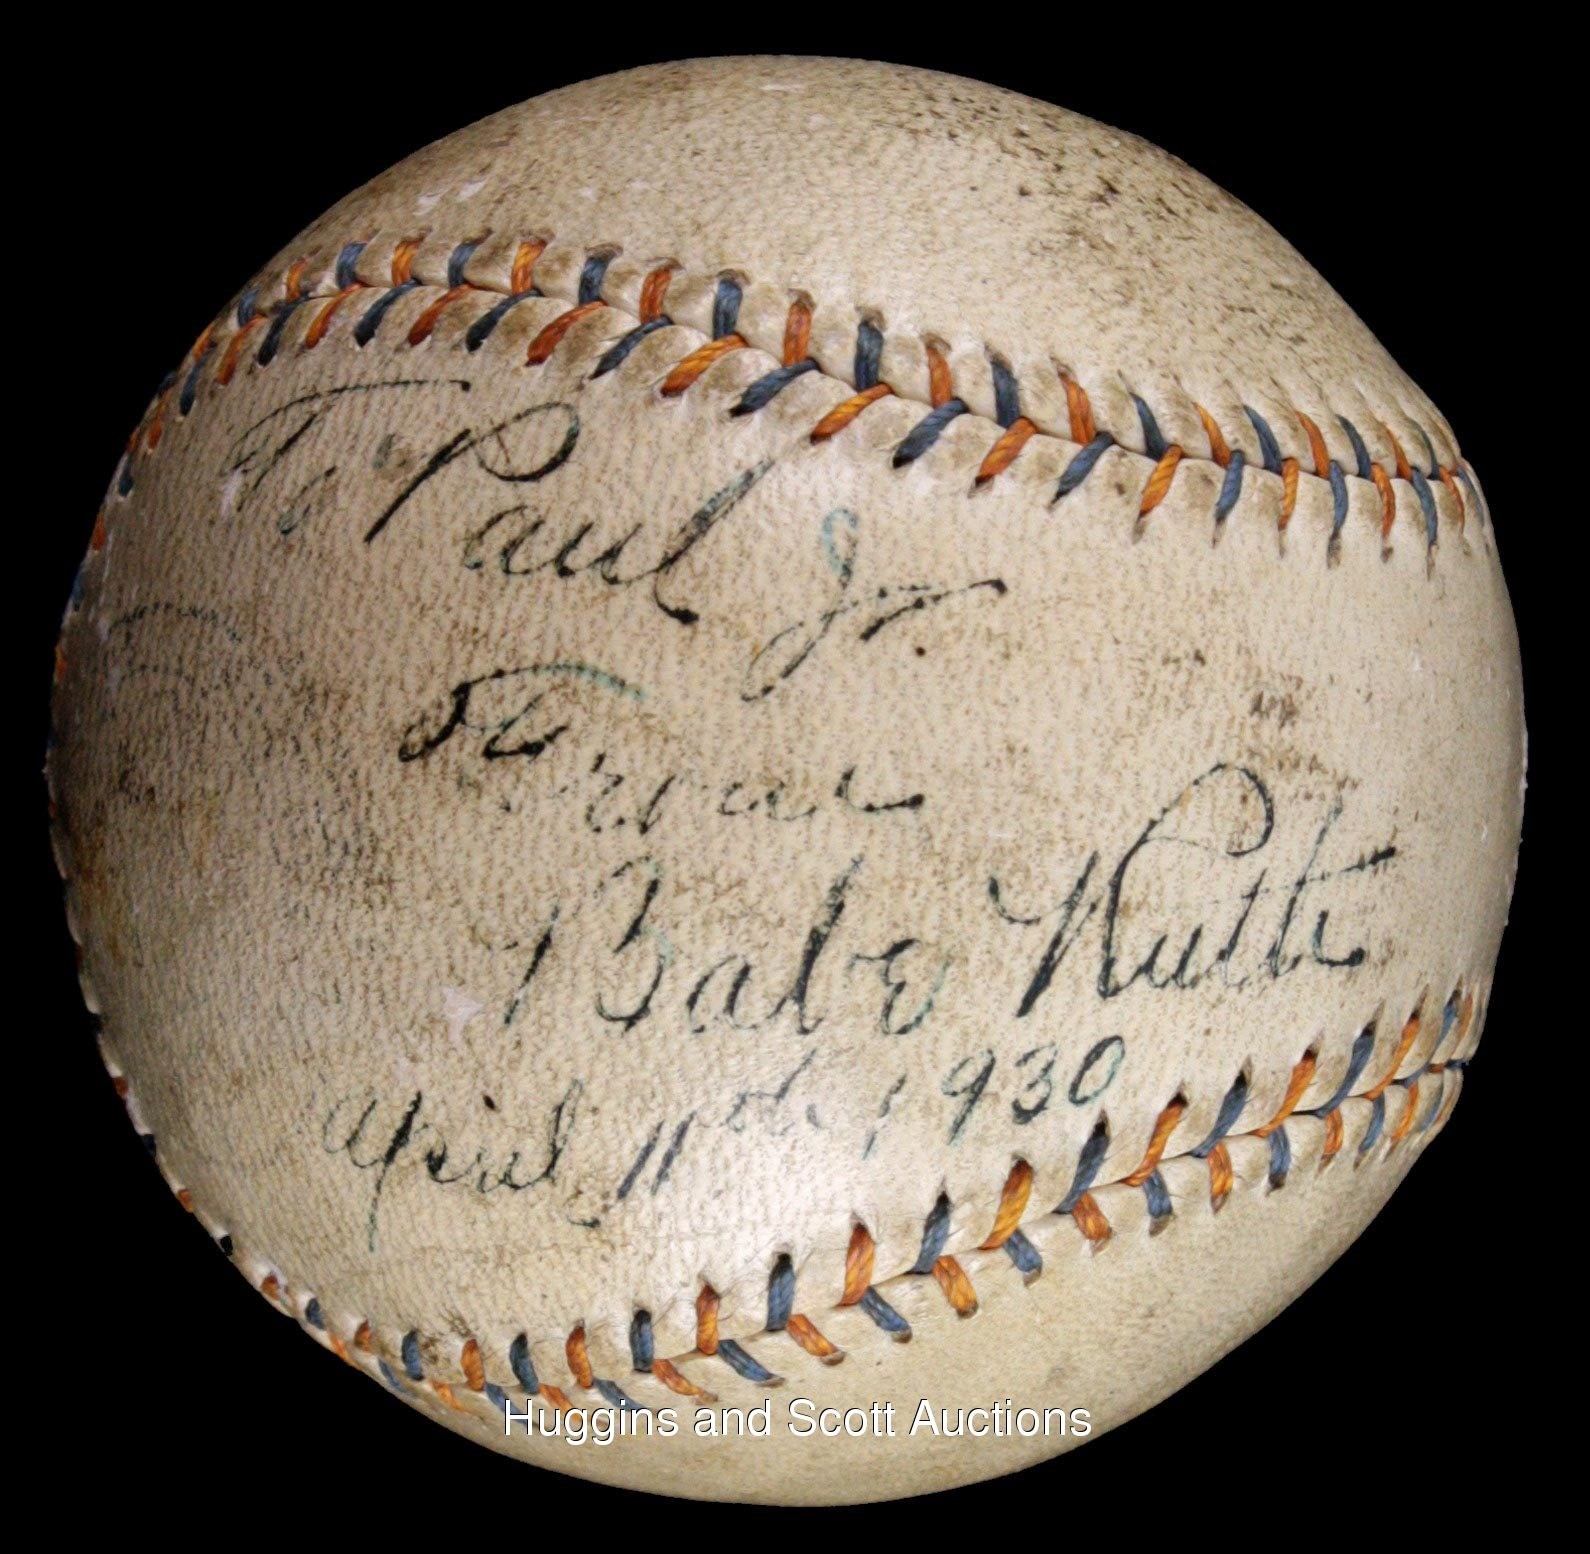 To Paul Jr.
From
Babe Ruth
April 11th, 1930
Huggins and Scott Auctions